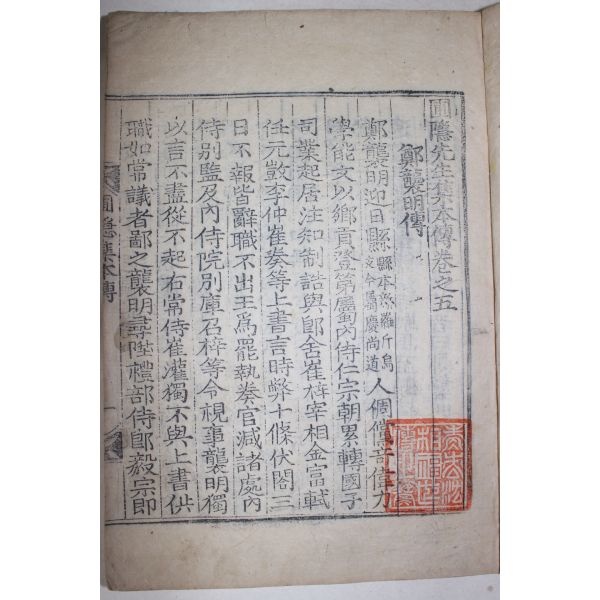 圃隱先生集本傳卷之五
鄭襲明傳
鄭襲明迎日縣縣本新羅斤烏支今屬慶尙道人倜儻奇偉力
學能文以鄕貢登第屬內侍仁宗朝累轉國子
司業起居注知制誥與郞舍崔梓宰相金富軾
任元敱李仲崔奏等上書言時弊十條伏閤三
日不報皆辭職不出王爲罷執奏官减諸處內
侍別監及內侍院別庫召梓等令視事襲明獨
以言不盡從不起右常侍崔灌獨不與上書供
職如常議者鄙之襲明尋陞禮部侍郞毅宗卽
圃隱集本傳
一